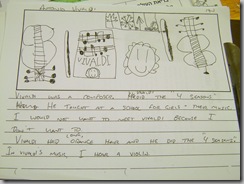 Antonio Vivaldi
VIVALDI
VIVALDI WAS A COMPOSER. HE DID THE "4 SEASONS"
HE TAUGHT AT A SCHOOL FOR GIRLS THEIR MUSIC.
I WOULD NOT WANT TO MEET VIVALDI BECAUSE I
DON'T WANT TO.
VIVALDI HAD ORANGE HAIR AND HE DID THE "4 SEASONS".
IN VIVALDI'S MUSIC I HAVE A